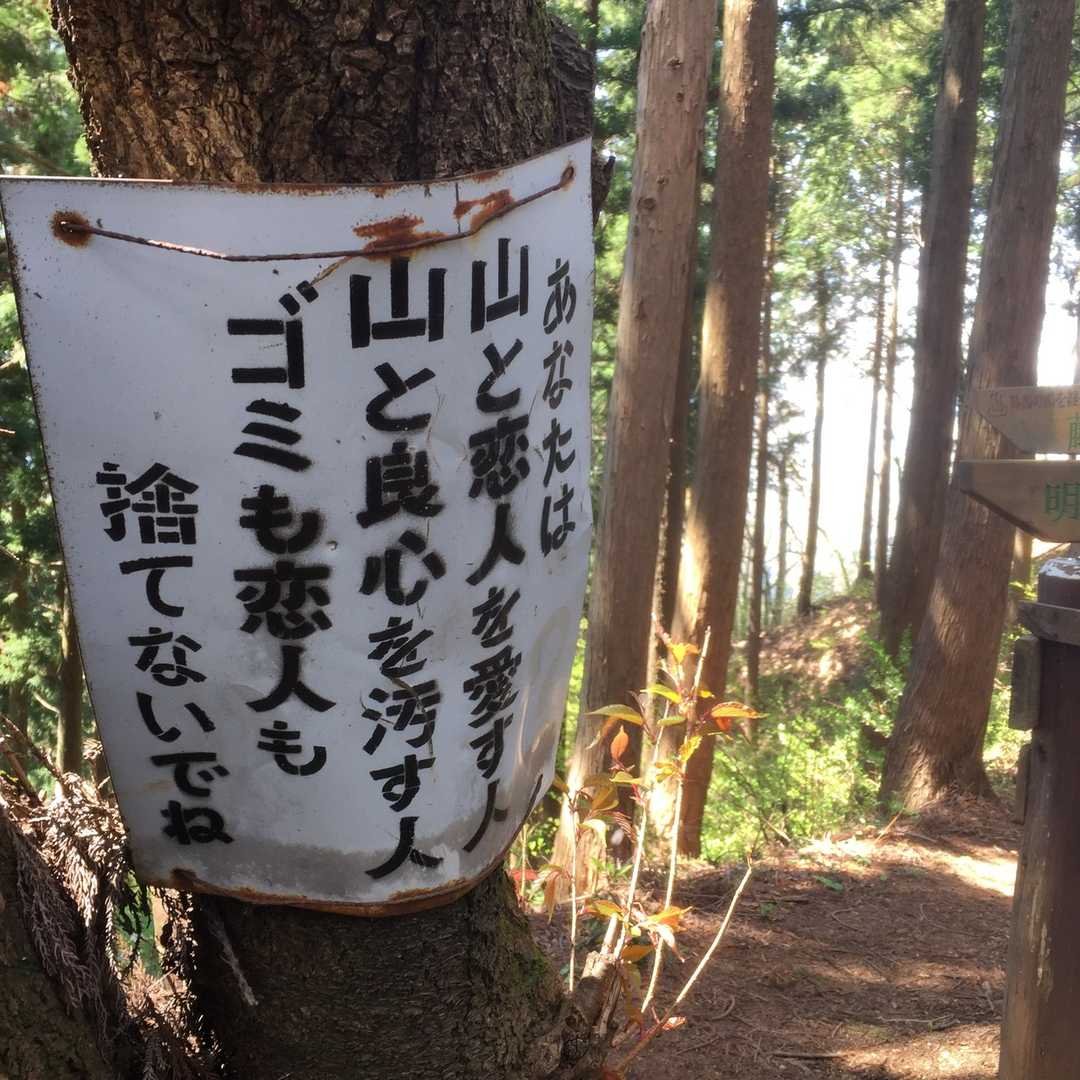 あなたは
山と恋人を愛す人
山と良心を汚す人
ゴミも恋人も
捨てないでね
明